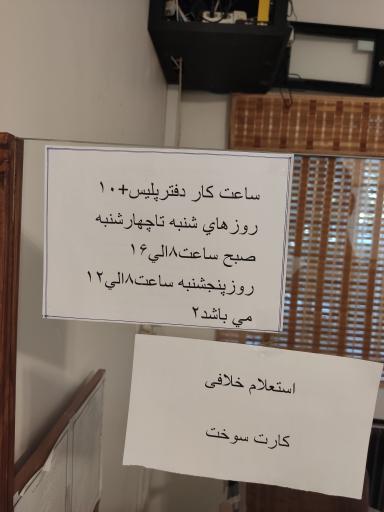 ساعت كار دفترپليس+۱۰
روزهاي شنبه تاچهارشنبه
صبح ساعت۸الي۱۶
روزپنجشنبه ساعت۸الي۱۲
مي باشد۲
استعلام خلافی
کارت سوخت